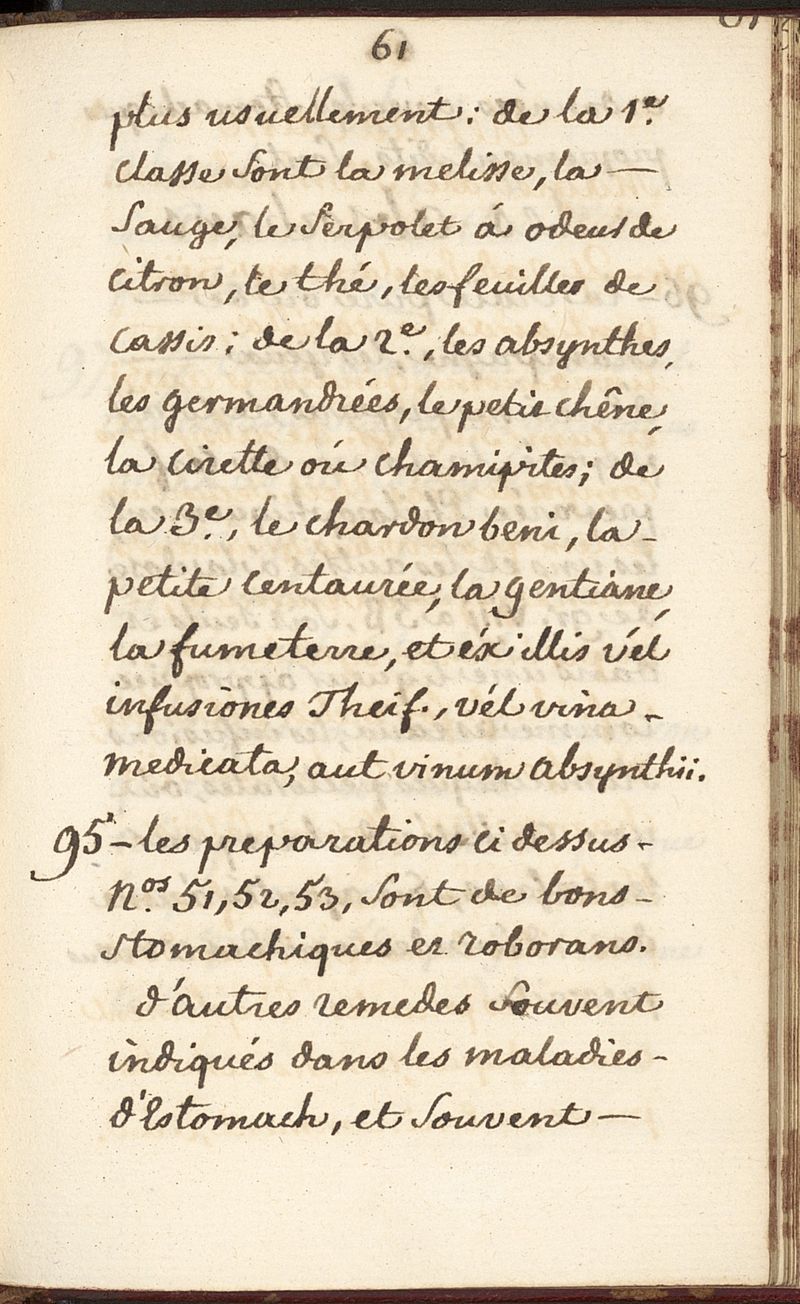 61
plus usuellement: de la 1.e
classe sont la melisse, la —
sauge, le serpolet á odeur de
citron, le thé, les feuilles de
cassis; de la 2.e, les absynthes,
les germandrées, le petit chêne,
la civette oú chamipites; de
la 3.e, le chardon beni, la -
petite centaurée, la gentiane,
la fumeterre, et éx illis vél
infusiones Theif., vél vina -
medicata, aut vinum absynthii.
95 - les preparations ci dessus -
N.os 51, 52, 53, sont de bons -
stomachiques et roborans.
d'autres remedes souvent
indiqués dans les maladies -
d'Estomach, et souvent —